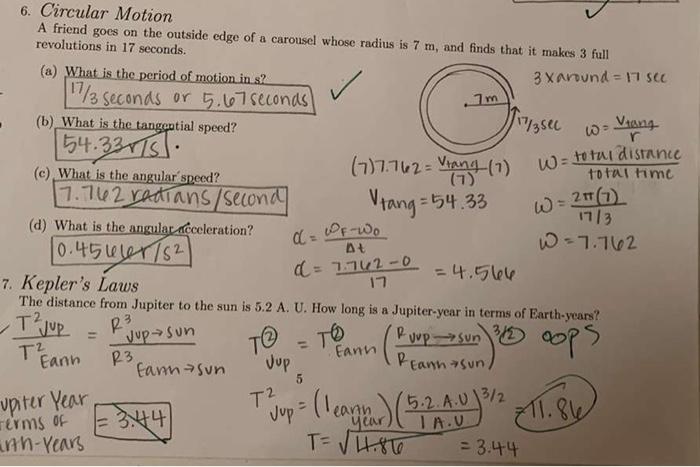 6. Circular Motion
A friend goes on the outside edge of a carousel whose radius is 7 m, and finds that it makes 3 full
revolutions in 17 seconds.
(a) What is the period of motion in s?
17/3 seconds or 5.67 seconds ✓
7m
3 x around = 17 sec
17/3 sec
(b) What is the tangential speed?
54.33 r/s.
ω = Vtang/r
(c) What is the angular speed?
7.762 radians/second
(7)7.762 = Vtang/(7) (7)
Vtang = 54.33
ω = total distance/total time
ω = 2π(7)/17/3
ω = 7.762
(d) What is the angular acceleration?
0.4566r/s²
α = ωF-ω0/Δt
α = 7.762-0/17 = 4.566
7. Kepler's Laws
The distance from Jupiter to the sun is 5.2 A. U. How long is a Jupiter-year in terms of Earth-years?
T²Jup/T²Earth = R³Jup→sun/R³Earth→sun
T②Jup = T②Earth (RJup→sun/REarth→sun)^3/2 oops
5
T²Jup = (1 earth year)(5.2 A.U/1 A.U)^3/2 = 11.86
T = √11.86 = 3.44
upiter Year
terms of = 3.44
arth-Years